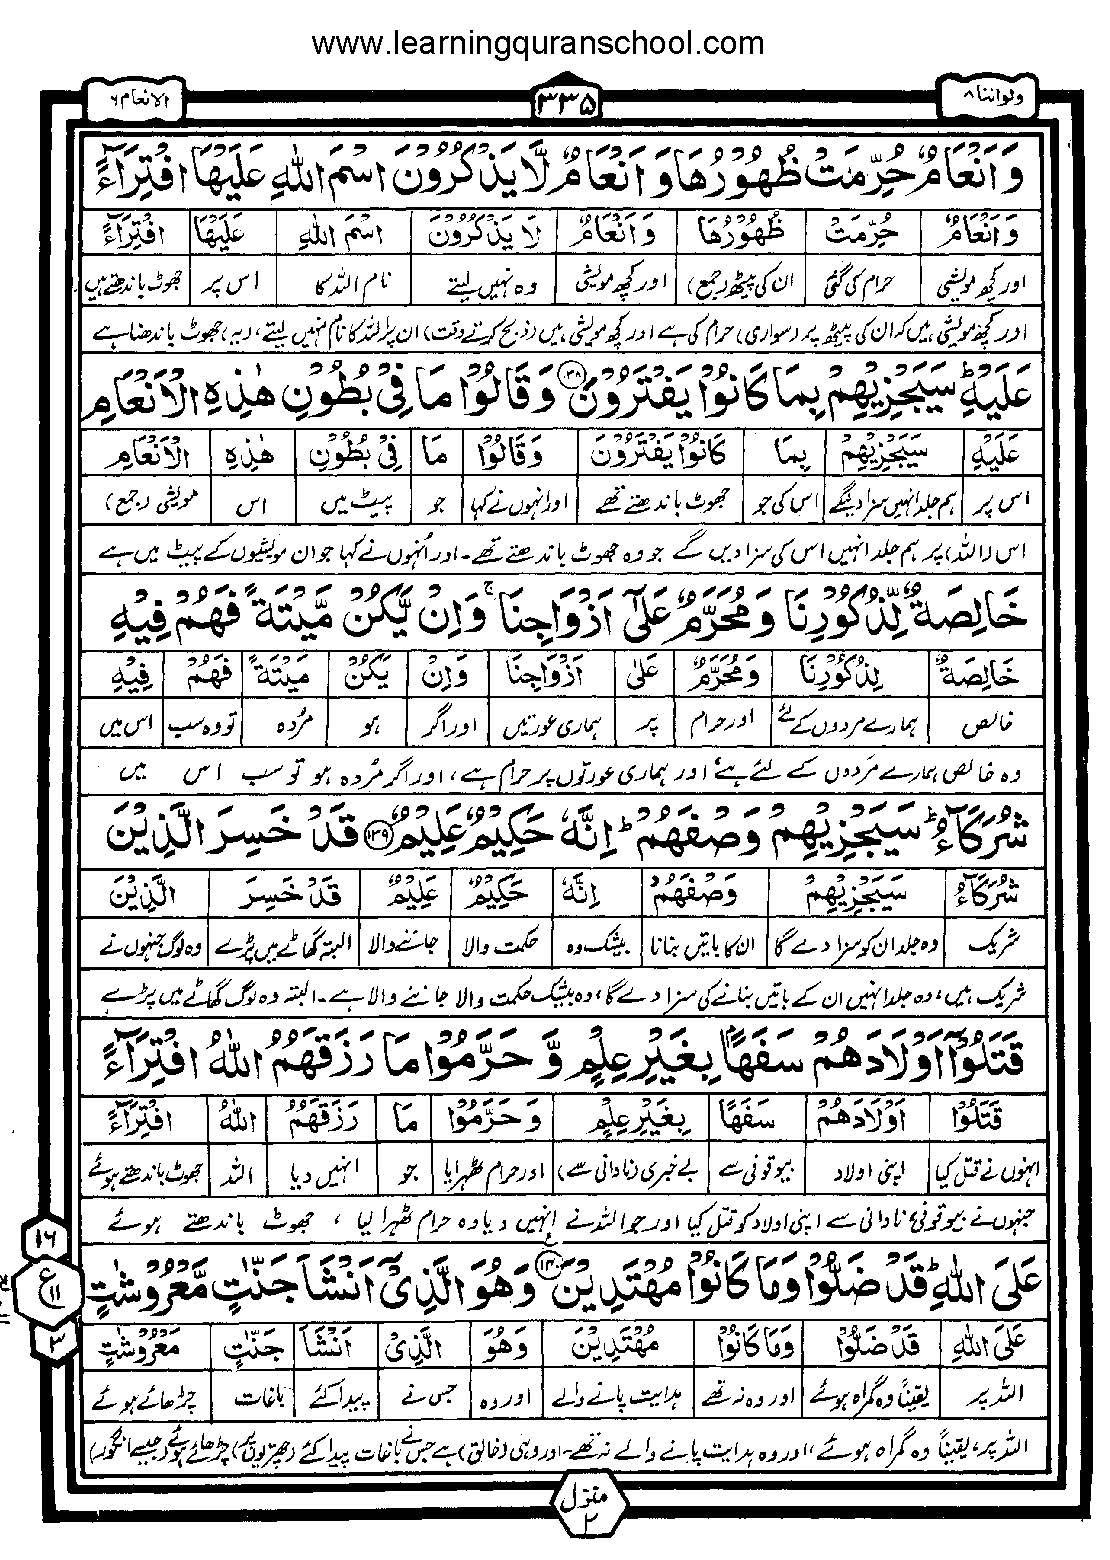 www.learningquranschool.com
ولواننا ۸
۳۳۵
الانعام ۶
وَاَنْعَامٌ حُرِّمَتْ ظُهُوْرُهَا وَاَنْعَامٌ لَّا يَذْكُرُوْنَ اسْمَ اللّٰهِ عَلَيْهَا افْتِرَآءً
وَاَنْعَامٌ حُرِّمَتْ ظُهُوْرُهَا وَاَنْعَامٌ لَا يَذْكُرُوْنَ اسْمَ اللّٰهِ عَلَيْهَا افْتِرَآءً
اور کچھ مویشی حرام کی گئی ان کی پیٹھ (جمع) اور کچھ مویشی وہ نہیں لیتے نام اللہ کا اس پر جھوٹ باندھتے ہیں
اور کچھ مویشی ہیں کہ ان کی پیٹھ پر (سواری) حرام کی ہے اور کچھ مویشی ہیں (ذبح کرتے وقت) ان پر اللہ کا نام نہیں لیتے، (یہ) جھوٹ باندھنا ہے
عَلَيْهِ ؕ سَيَجْزِيْهِمْ بِمَا كَانُوْا يَفْتَرُوْنَ ۱۳۸ وَقَالُوْا مَا فِيْ بُطُوْنِ هٰذِهِ الْاَنْعَامِ
عَلَيْهِ سَيَجْزِيْهِمْ بِمَا كَانُوْا يَفْتَرُوْنَ وَقَالُوْا مَا فِيْ بُطُوْنِ هٰذِهِ الْاَنْعَامِ
اس پر ہم جلد انہیں سزا دینگے اس کی جو جھوٹ باندھتے تھے اور انہوں نے کہا جو پیٹ میں اس مویشی (جمع)
اس (اللہ) پر ہم جلد انہیں اس کی سزا دیں گے جو وہ جھوٹ باندھتے تھے۔ اور اُنہوں نے کہا جو ان مویشیوں کے پیٹ میں ہے
خَالِصَةٌ لِّذُكُوْرِنَا وَمُحَرَّمٌ عَلٰٓى اَزْوَاجِنَا ۚ وَاِنْ يَّكُنْ مَّيْتَةً فَهُمْ فِيْهِ
خَالِصَةٌ لِذُكُوْرِنَا وَمُحَرَّمٌ عَلٰى اَزْوَاجِنَا وَاِنْ يَكُنْ مَيْتَةً فَهُمْ فِيْهِ
خالص ہمارے مردوں کے لئے اور حرام پر ہماری عورتیں اور اگر ہو مُردہ تو وہ سب اس میں
وہ خالص ہمارے مَردوں کے لئے ہے، اور ہماری عورتوں پر حرام ہے، اور اگر مُردہ ہو تو سب اس میں
شُرَكَآءُ ؕ سَيَجْزِيْهِمْ وَصْفَهُمْ ؕ اِنَّهٗ حَكِيْمٌ عَلِيْمٌ ۱۳۹ قَدْ خَسِرَ الَّذِيْنَ
شُرَكَآءُ سَيَجْزِيْهِمْ وَصْفَهُمْ اِنَّهٗ حَكِيْمٌ عَلِيْمٌ قَدْ خَسِرَ الَّذِيْنَ
شریک وہ جلد ان کو سزا دے گا ان کا باتیں بنانا بیشک وہ حکمت والا جاننے والا البتہ گھاٹے میں پڑے وہ لوگ جنہوں نے
شریک ہیں، وہ جلد انہیں ان کے باتیں بنانے کی سزا دے گا، وہ بیشک حکمت والا جاننے والا ہے۔ البتہ وہ لوگ گھاٹے میں پڑے
قَتَلُوْٓا اَوْلَادَهُمْ سَفَهًا بِغَيْرِ عِلْمٍ وَّحَرَّمُوْا مَا رَزَقَهُمُ اللّٰهُ افْتِرَآءً
قَتَلُوْا اَوْلَادَهُمْ سَفَهًا بِغَيْرِ عِلْمٍ وَحَرَّمُوْا مَا رَزَقَهُمُ اللّٰهُ افْتِرَآءً
انہوں نے قتل کیا اپنی اولاد بیوقوفی سے بے خبری (نادانی سے) اور حرام ٹھہرایا جو انہیں دیا اللہ جھوٹ باندھتے ہوئے
جنہوں نے بیوقوفی، نادانی سے اپنی اولاد کو قتل کیا اور جو اللہ نے انہیں دیا وہ حرام ٹھہرا لیا، جھوٹ باندھتے ہوئے
عَلَى اللّٰهِ ؕ قَدْ ضَلُّوْا وَمَا كَانُوْا مُهْتَدِيْنَ ۱۴۰ ع وَهُوَ الَّذِيْٓ اَنْشَاَ جَنّٰتٍ مَّعْرُوْشٰتٍ
۱۶
ع ۱۱
۳
عَلَى اللّٰهِ قَدْ ضَلُّوْا وَمَا كَانُوْا مُهْتَدِيْنَ وَهُوَ الَّذِيْ اَنْشَاَ جَنّٰتٍ مَعْرُوْشٰتٍ
اللہ پر یقیناً وہ گمراہ ہوئے اور وہ نہ تھے ہدایت پانے والے اور وہ جس نے پیدا کئے باغات چڑھائے ہوئے
اللہ پر، یقیناً وہ گمراہ ہوئے، اور وہ ہدایت پانے والے نہ تھے۔ اور وہی (خالق) ہے جس نے باغات پیدا کئے (چھتریوں پر) چڑھائے ہوئے (جیسے انگور)
منزل ۲